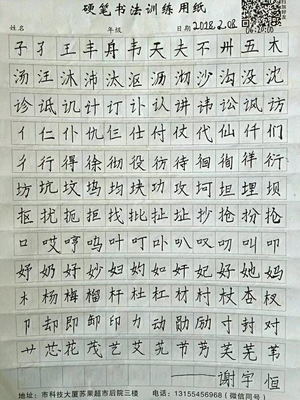 硬笔书法训练用纸
姓名 年级 日期 2018.2.08
子 孑 王 丰 身 韦 天 夫 不 卅 五 木
汤 汪 沐 沛 汰 沤 沥 沏 沙 沟 没 沈
诊 诋 讥 计 订 讣 认 讲 讳 讼 讽 访
亻 仁 仆 仇 仨 仕 付 仗 代 仙 仟 们
彳 行 得 徐 彻 役 彷 待 徊 徜 徉 衍
坊 坑 坟 坞 均 块 功 攻 坷 坦 埋 坝
抠 扰 扼 拒 找 批 扯 址 抄 抢 扮 抡
口 哎 哼 呜 叶 叮 卟 叭 叹 叨 叫 叩
妤 奶 好 妙 妇 奵 如 奸 妃 好 她 妈
木 杨 梅 榴 杆 杜 杠 材 村 杖 杏 杈
卩 却 即 卸 印 力 动 勋 励 寸 封 对
艹 芯 花 茂 艺 艾 芜 节 芳 芙 芜 苇
谢宇恒
地址：市科技大厦苏果超市后院三楼 13155456968（微信同号）